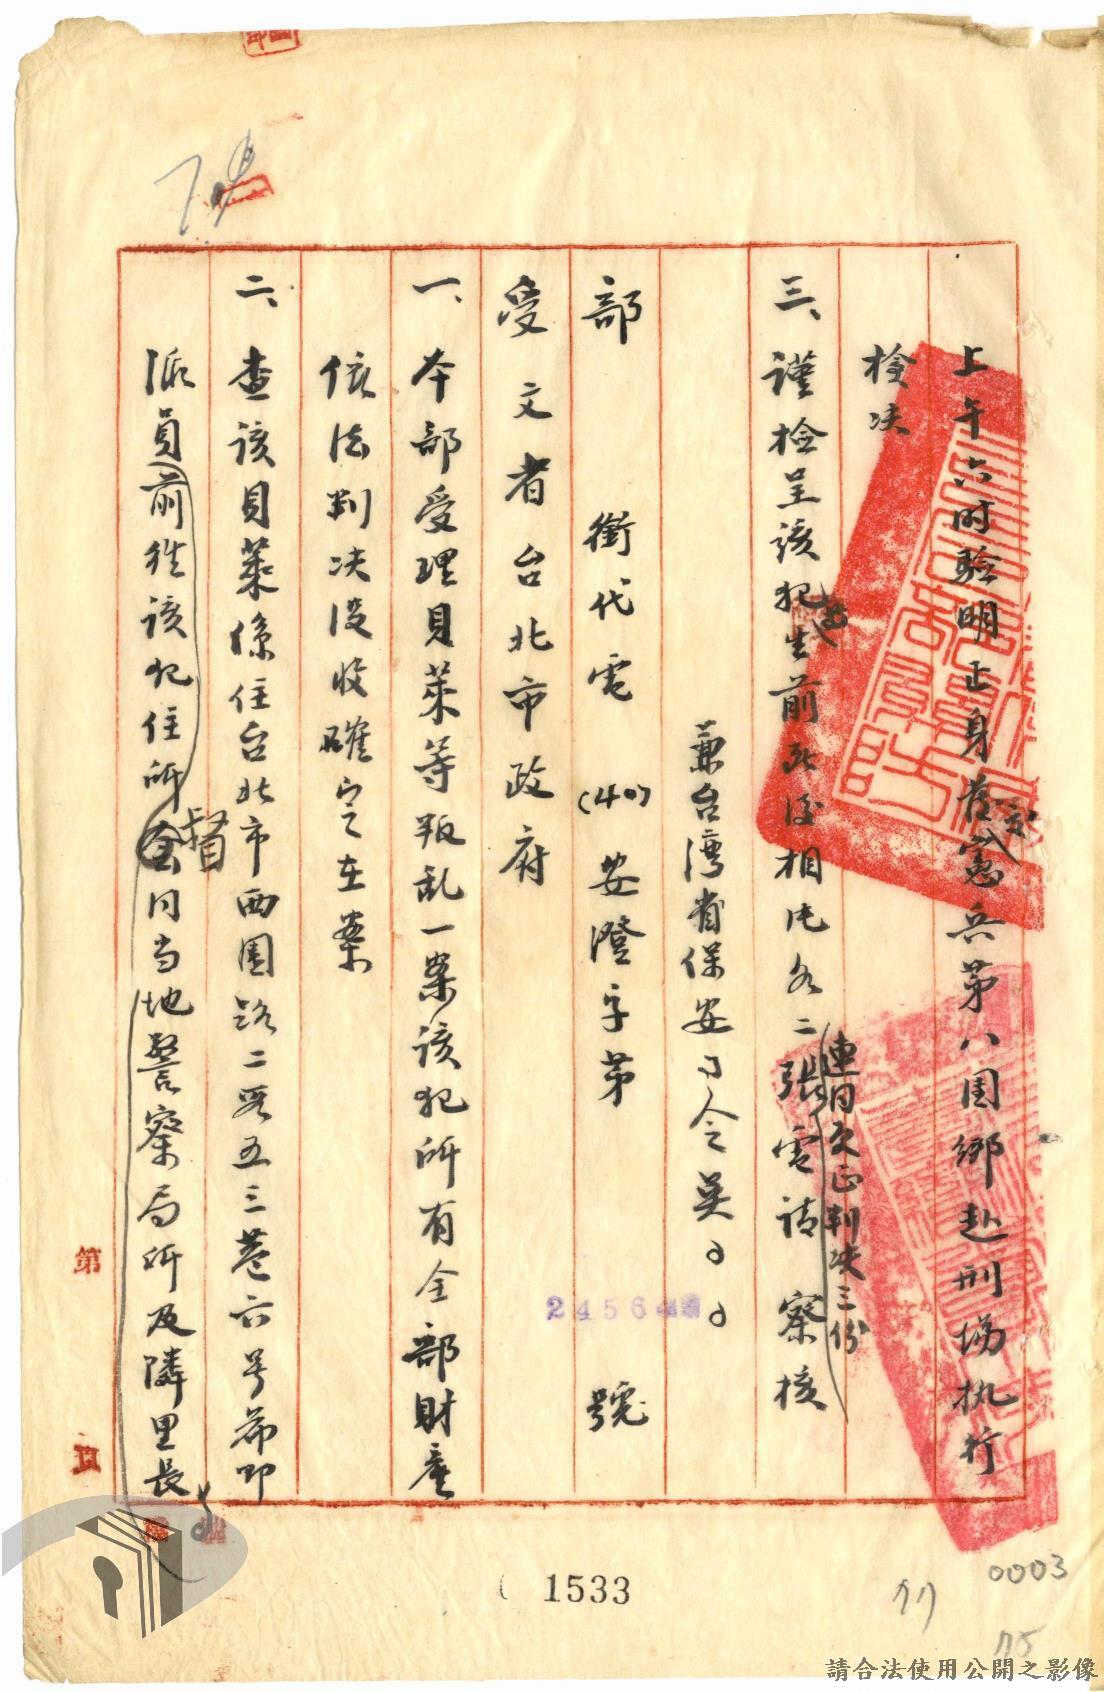 上午六时验明正身发交憲兵第八团鄉赴刑場执行
枪决
三、謹检呈该犯生前死後相片各二張連同更正判决三份電請 察核
兼台灣省保安司令吳〇〇
部 銜代電 (40)安澄字第 號
2456
受文者台北市政府
一、本部受理貝萊等叛乱一案该犯所有全部財產
依法判决没收確定在案
二、查该貝萊係住台北市西園路二段五三巷六号希即
派員前往该犯住所督会同当地警察局所及隣里長
第
頁
1533
0003
77
75
請合法使用公開之影像